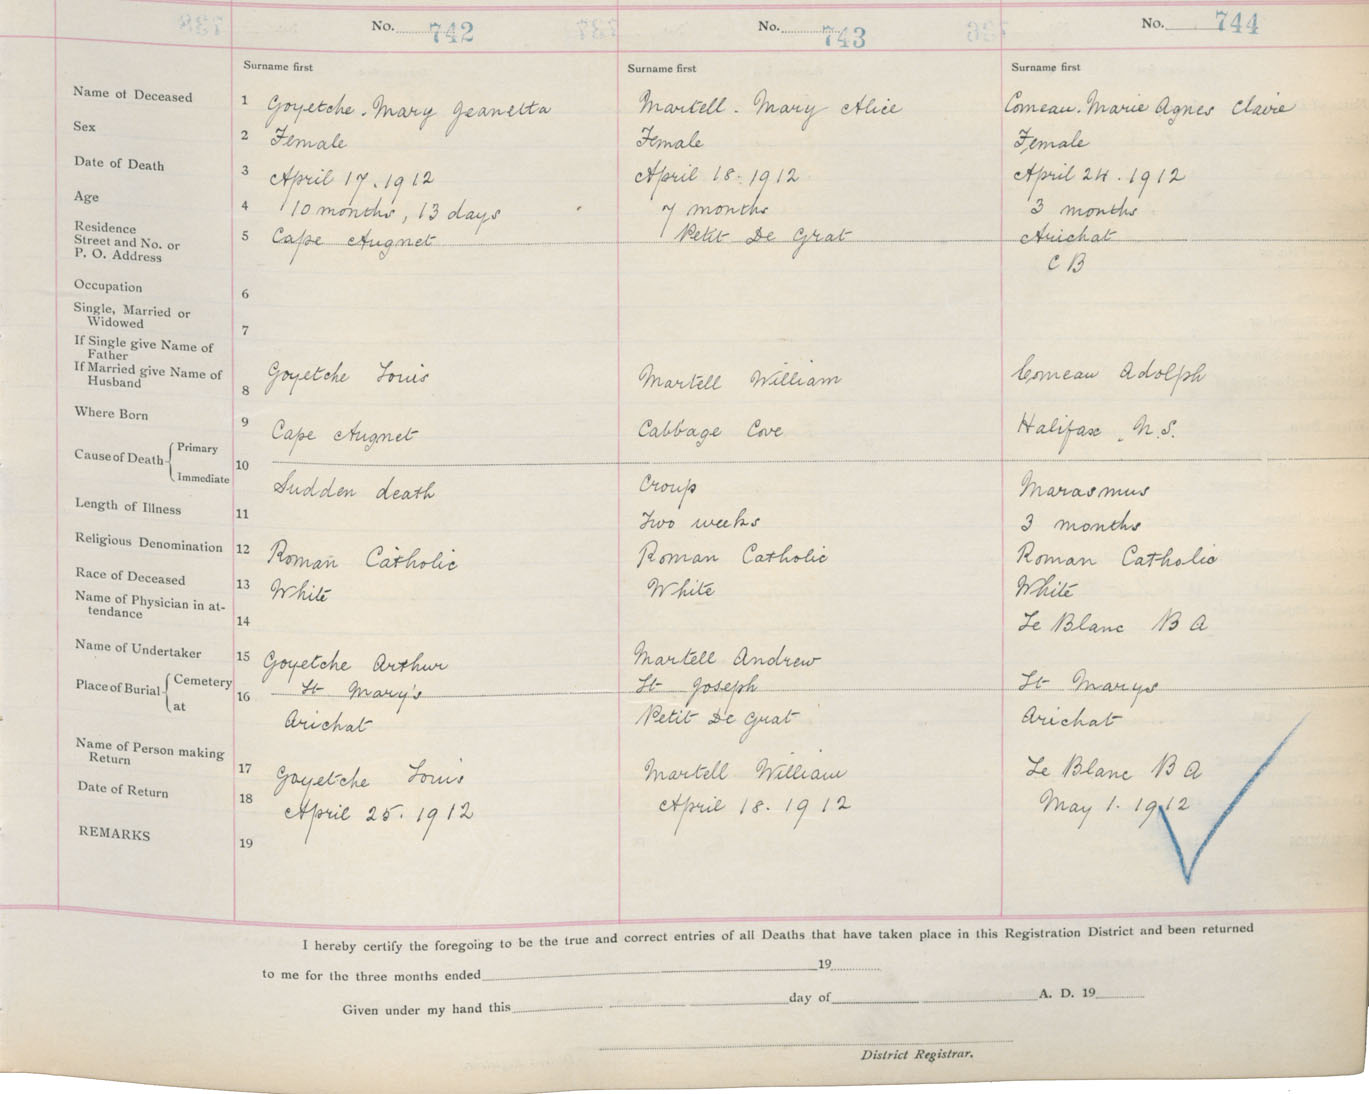 No. 742
No. 743
No. 744
Surname first
Surname first
Surname first
Name of Deceased 1 Goyetche. Mary Jeanetta
Martell. Mary Alice
Comeau. Marie Agnes Claire
Sex 2 Female
Female
Female
Date of Death 3 April 17. 1912
April 18. 1912
April 24. 1912
Age 4 10 months, 13 days
7 months
3 months
Residence
Street and No. or
P. O. Address
5 Cape Augnet
Petit De Grat
Arichat
C B
Occupation 6
Single, Married or
Widowed 7
If Single give Name of
Father
If Married give Name of
Husband 8
Goyetche Louis
Martell William
Comeau Adolph
Where Born 9 Cape Augnet
Cabbage Cove
Halifax, N.S.
Cause of Death Primary
Immediate 10
Sudden death
Croup
Marasmus
Length of Illness 11
Two weeks
3 months
Religious Denomination 12 Roman Catholic
Roman Catholic
Roman Catholic
Race of Deceased 13 White
White
White
Name of Physician in at-
tendance 14
Le Blanc B A
Name of Undertaker 15 Goyetche Arthur
Martell Andrew
Place of Burial Cemetery
at 16
St Mary's
St Joseph
St Marys
Arichat
Petit De Grat
Arichat
Name of Person making
Return 17
Goyetche Louis
Martell William
Le Blanc B A
Date of Return 18 April 25. 1912
April 18. 1912
May 1. 1912
REMARKS 19
I hereby certify the foregoing to be the true and correct entries of all Deaths that have taken place in this Registration District and been returned
to me for the three months ended 19
Given under my hand this day of A. D. 19
District Registrar.